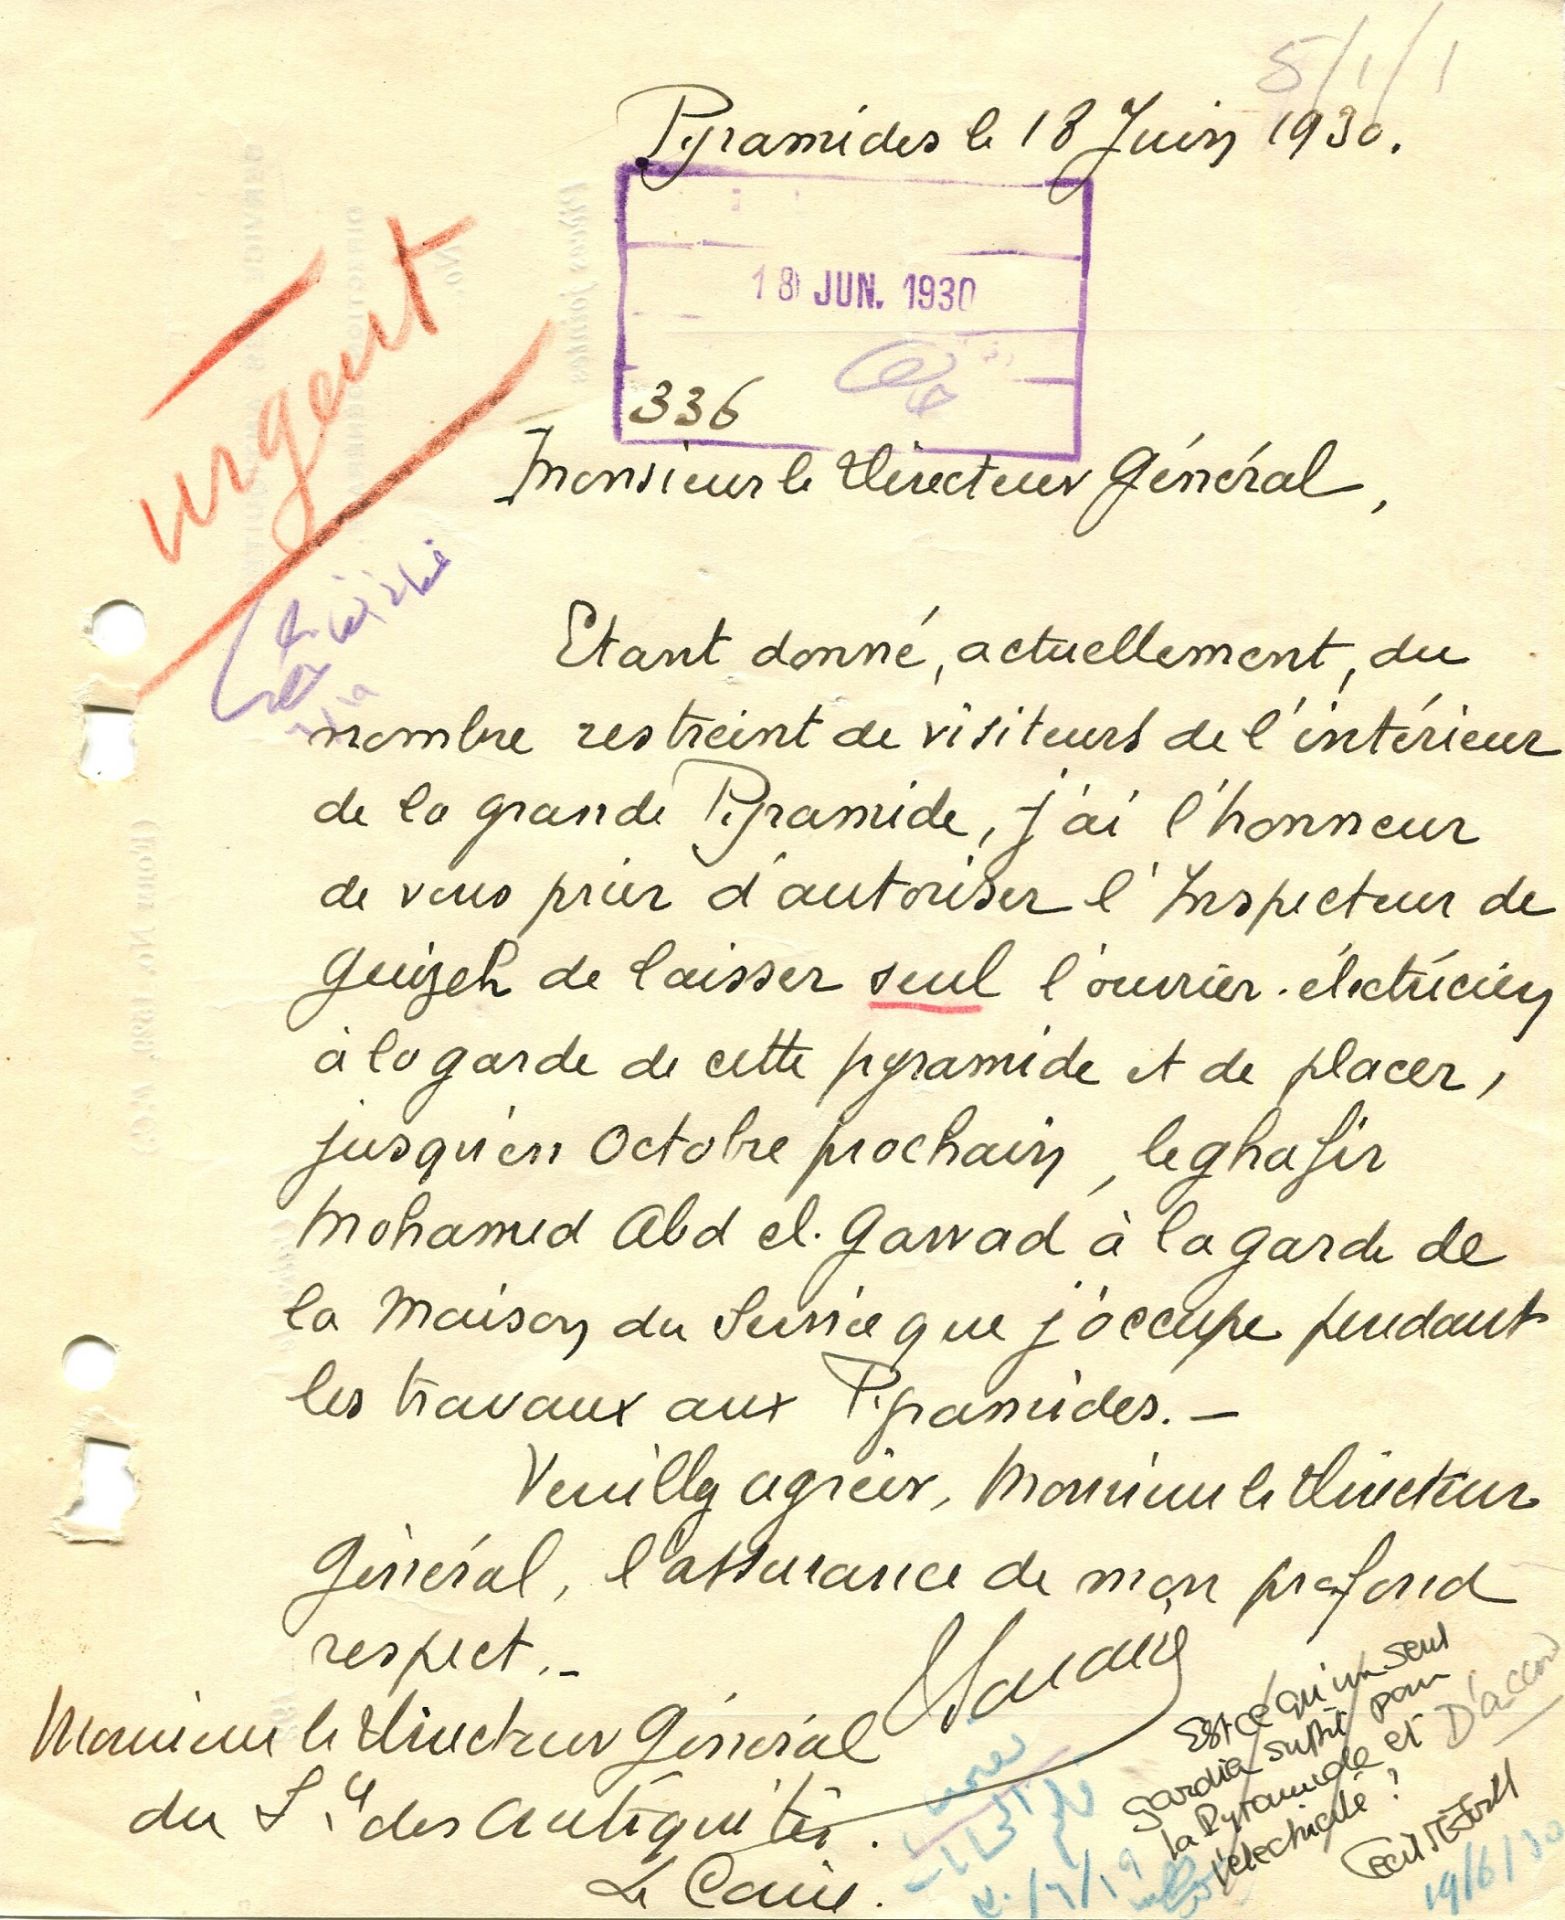 5/1/1
Pyramides le 18 Juin 1930.
18 JUN. 1930
336
urgent
Monsieur le Directeur Général,
Etant donné, actuellement, du
nombre restreint de visiteurs de l'intérieur
de la grande Pyramide, j'ai l'honneur
de vous prier d'autoriser l'Inspecteur de
Guizeh de laisser seul l'ouvrier-électricien
à la garde de cette pyramide et de placer,
jusqu'en Octobre prochain, le ghafir
Mohamed Abd el-Gawad à la garde de
la Maison du Service que j'occupe pendant
les travaux aux Pyramides.-
Veuillez agréer, Monsieur le Directeur
Général, l'assurance de mon profond
respect.-
Monsieur le Directeur Général
du Sce des Antiquités.
Le Caire.
Est ce qu'un seul
gardien suffit pour
la Pyramide et
l'électricité?
D'accord
Cecil M Firth
19/6/30